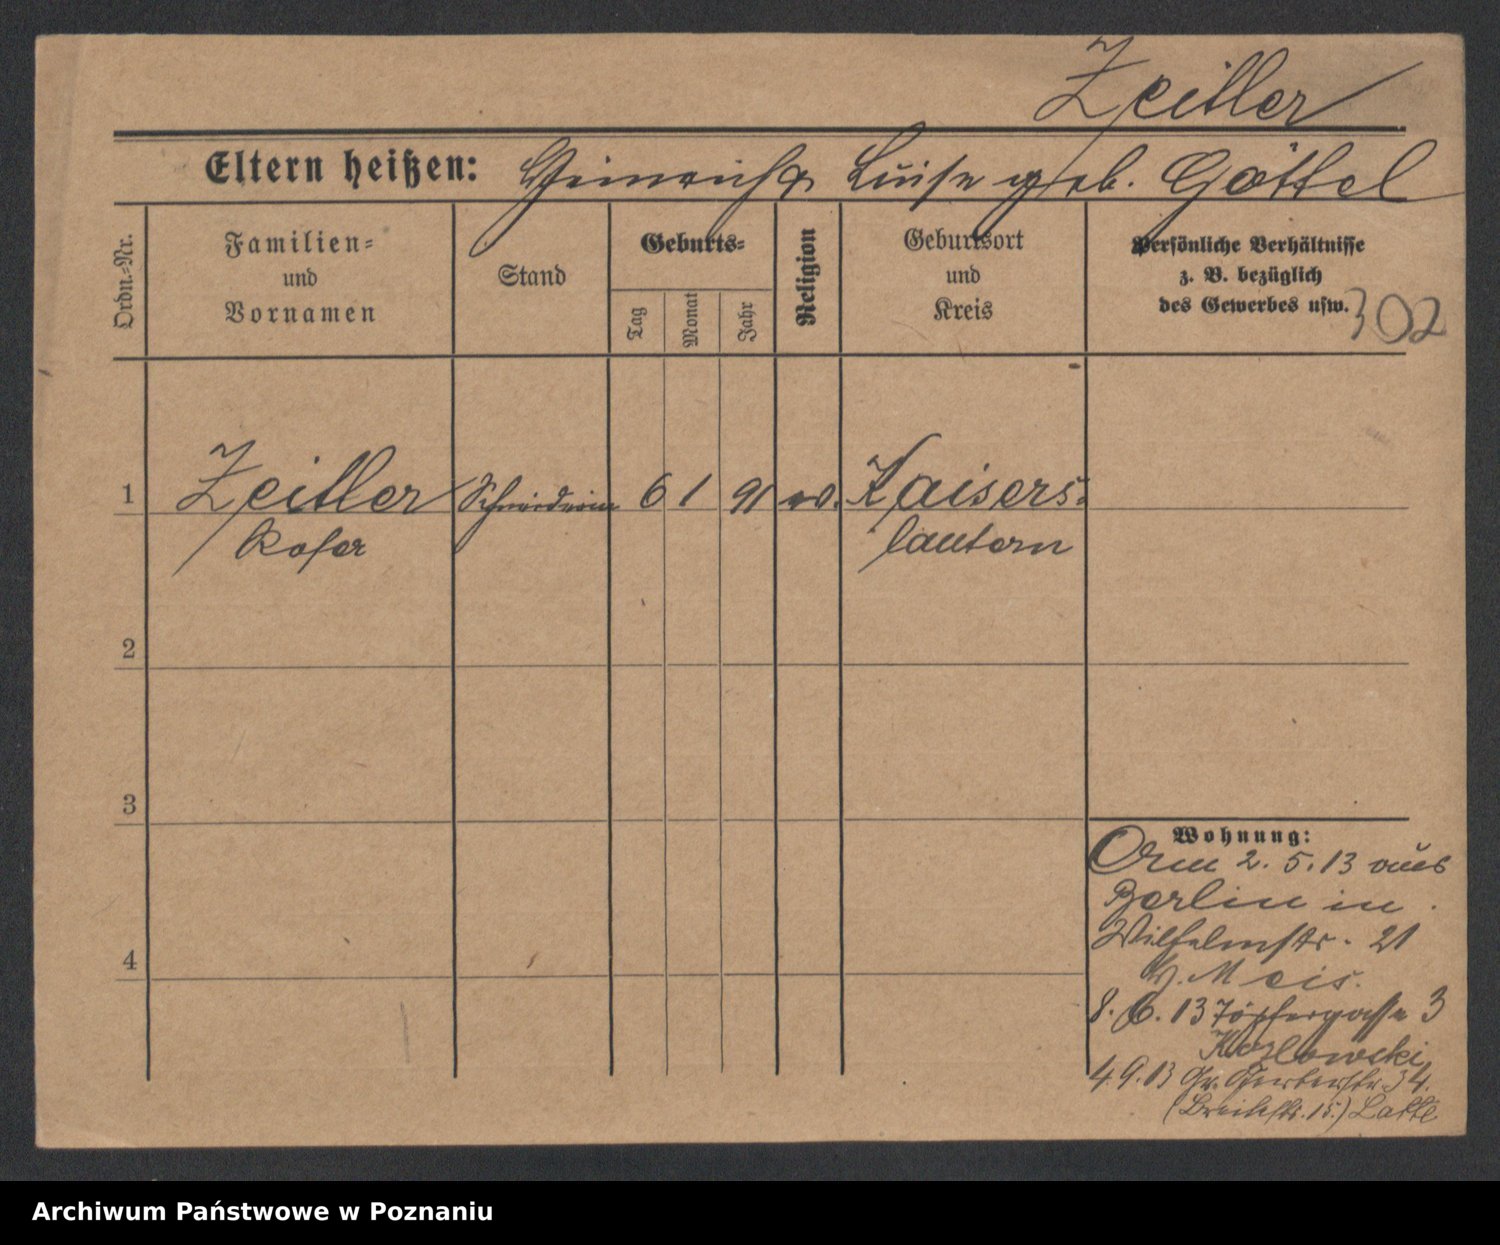 Zeitler
Eltern heißen: Heinrich Luise geb. Göttel
Ordn.-Nr.
Familien-
und
Vornamen
Stand
Geburts-
Tag
Monat
Jahr
Religion
Geburtsort
und
Kreis
Persönliche Verhältnisse
z. B. bezüglich
des Gewerbes usw.
302
1 Zeitler Schneiderin 6 1 91 ev. Kaisers-
lautern
2
3
4
Wohnung:
2. 5. 13 aus
Berlin in
Wilhelmstr. 21
b. Meis.
8. 6. 13 Töpfergasse 3
Kozlowski
4. 9. 13 Gr. Gerberstr. 34.
(Breitestr. 15.) Latte
Archiwum Państwowe w Poznaniu